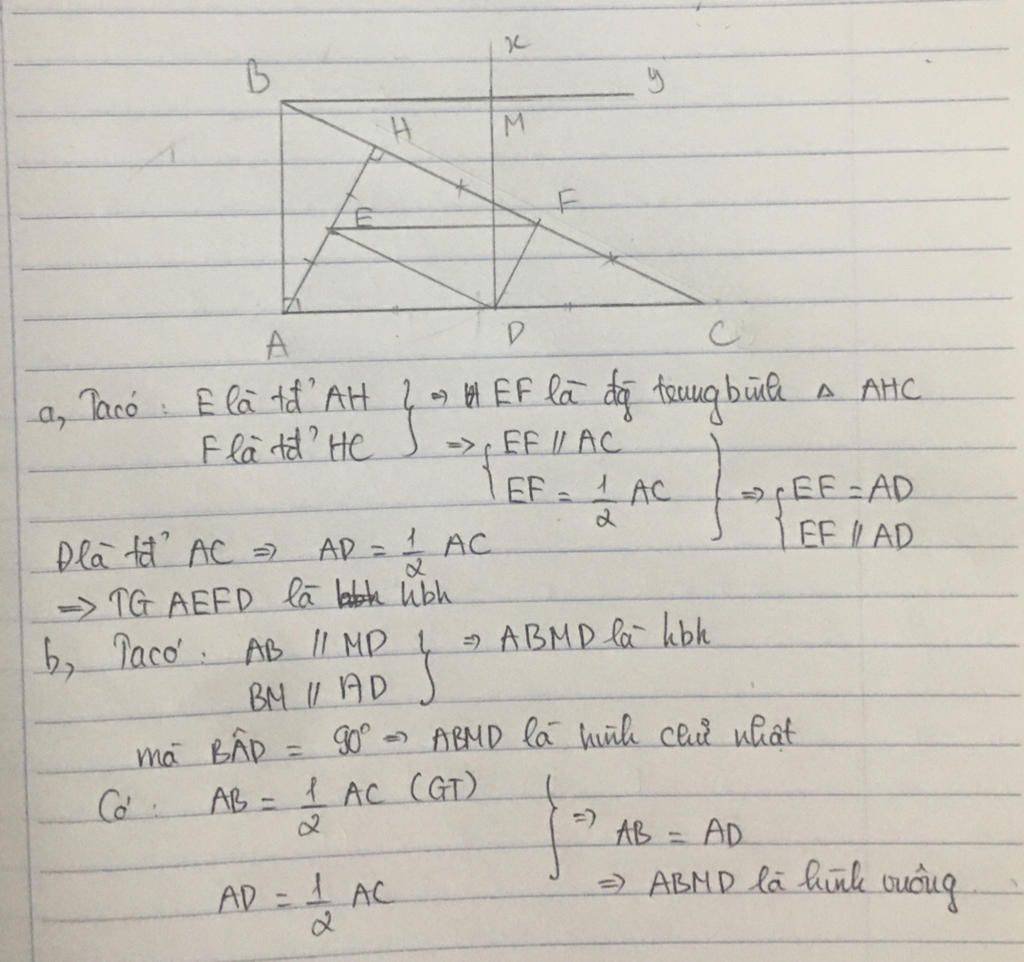 x
B
y
H
M
E
F
A
D
C
a, Tacó : E là tđ' AH } => EF là đg̃ trung bình △ AHC
F là tđ' HC => { EF // AC
EF = 1/2 AC } => { EF = AD
EF // AD
D là tđ' AC => AD = 1/2 AC
=> TG AEFD là hbh
b, Tacó : AB // MD } => ABMD là hbh
BM // AD
mà BÂD = 90° => ABMD là hình chữ nhật
Có : AB = 1/2 AC (GT) } => AB = AD
AD = 1/2 AC => ABMD là hình vuông